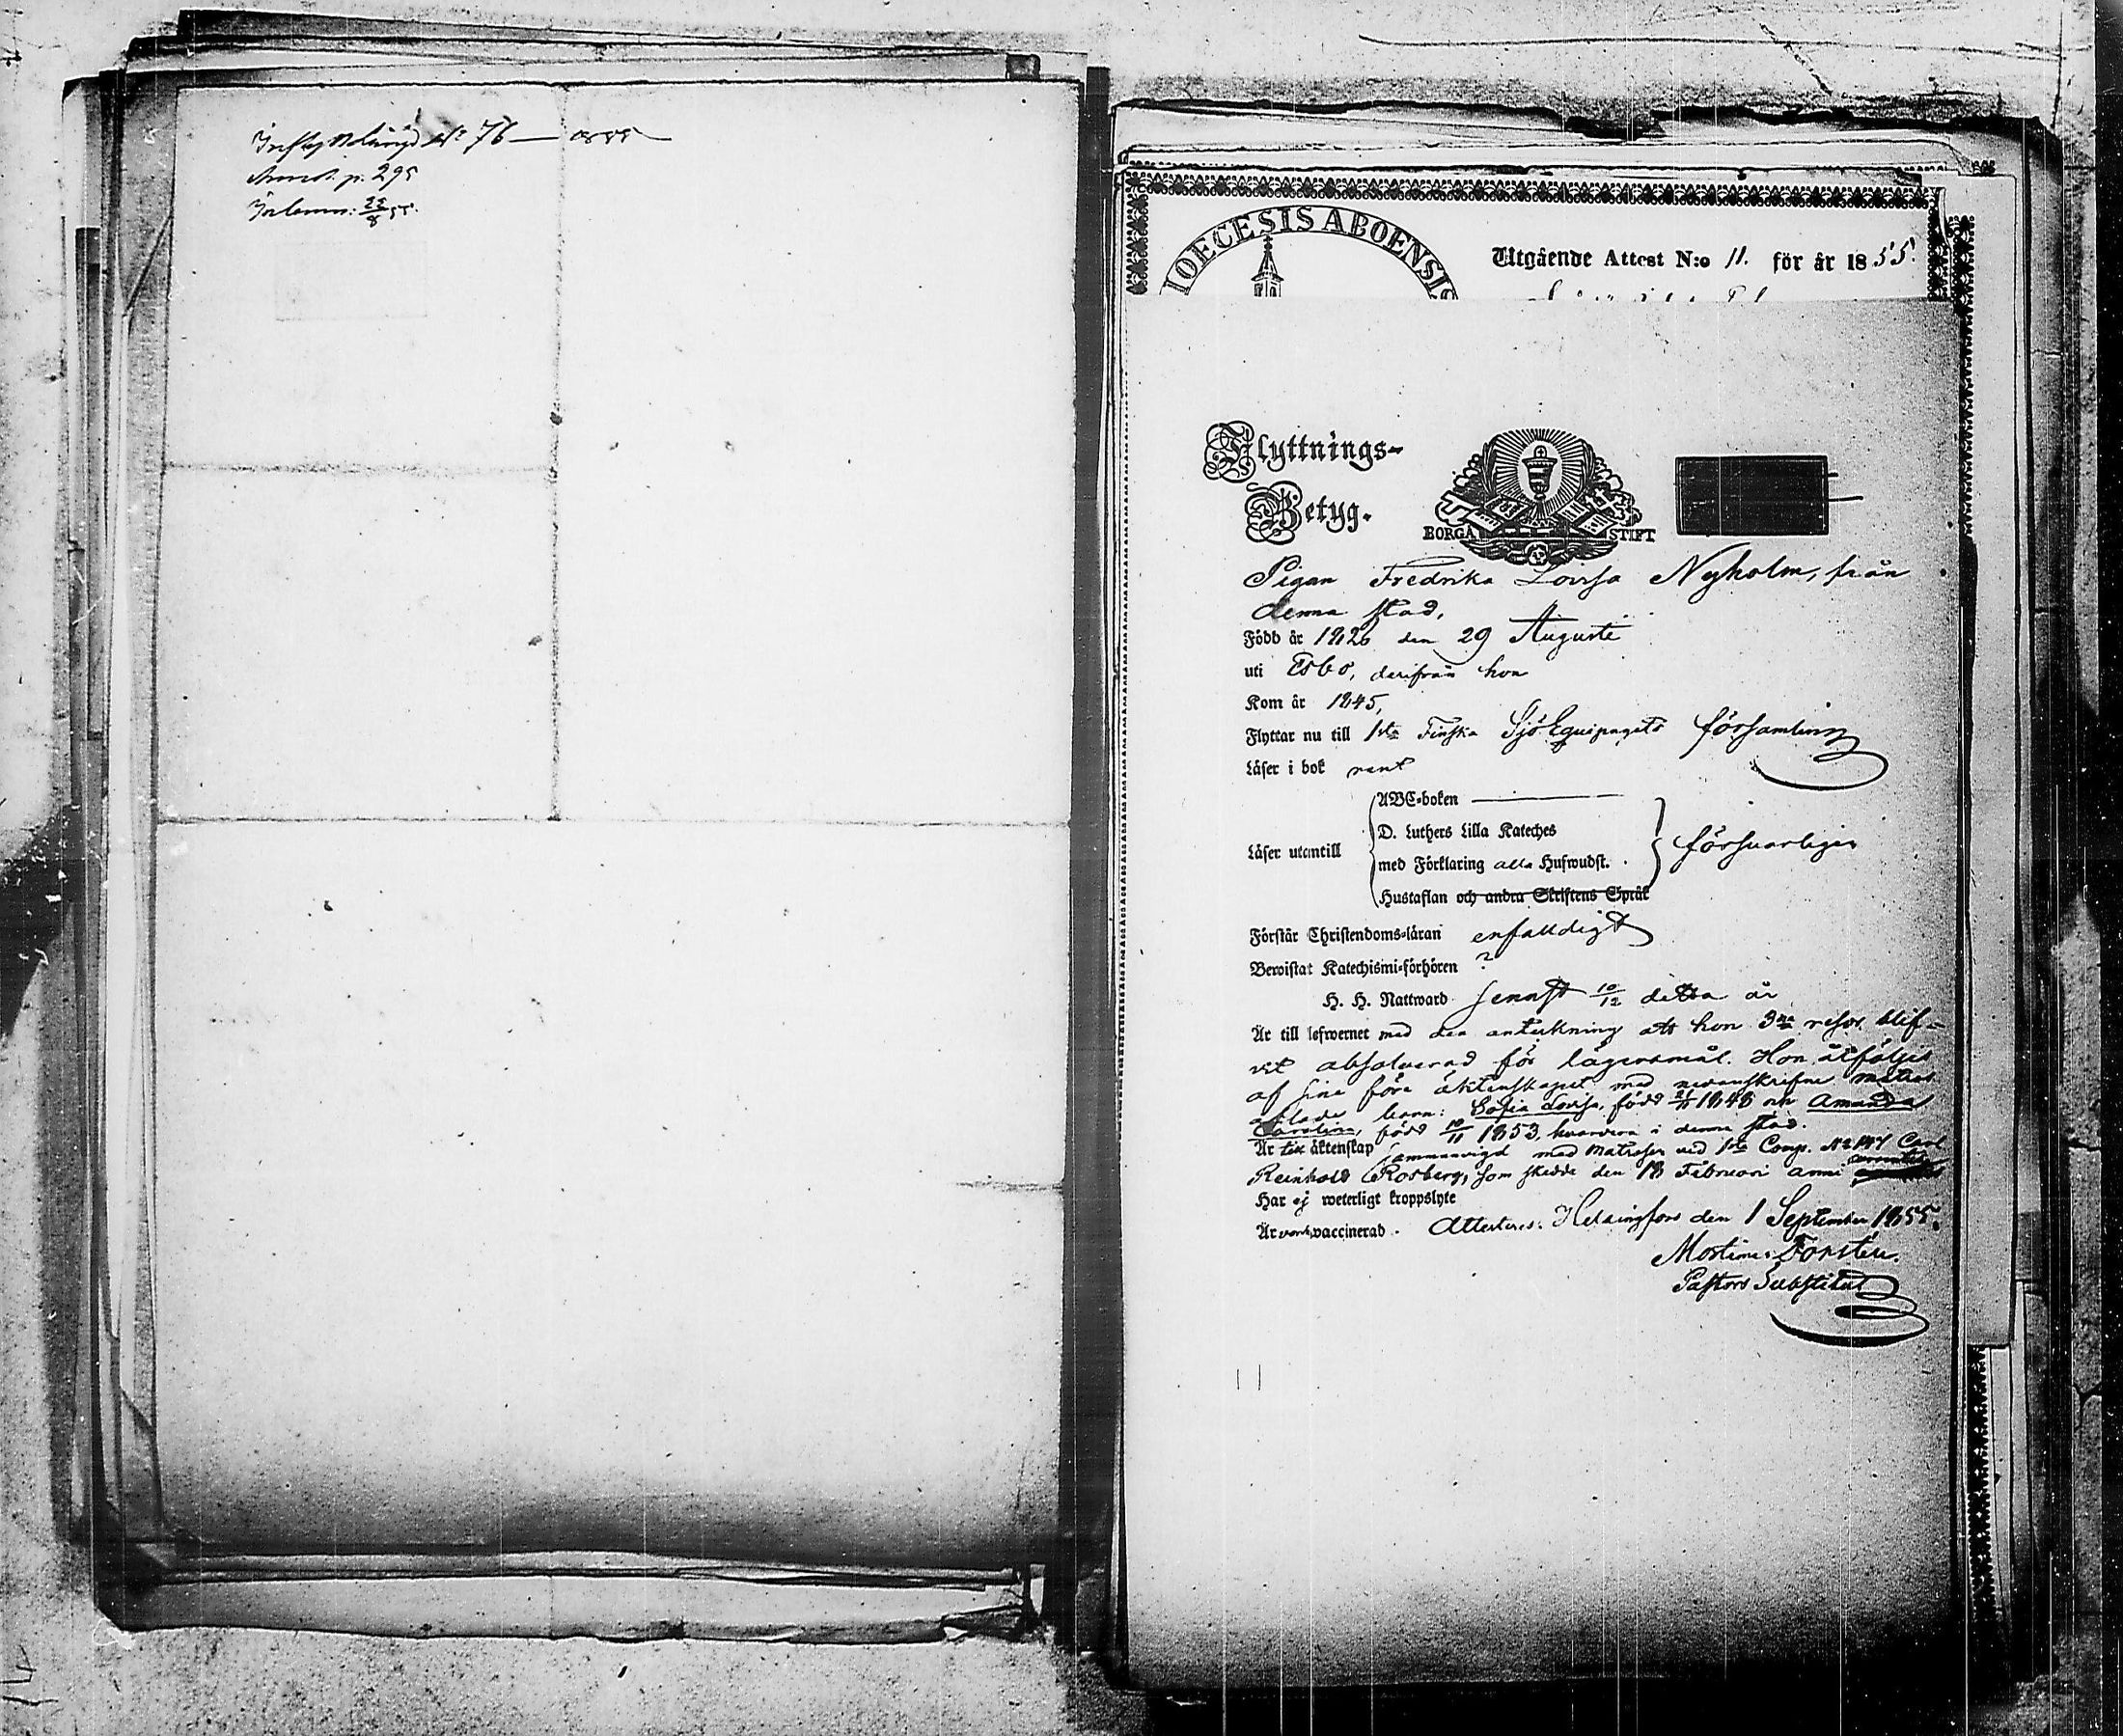 Inflyttnings N:o 76 — 1855
p. 295
22/8 55.
DIOECESIS ABOENSIS
Utgående Attest N:o 11. för år 1855.
Flyttnings-
Betyg.
BORGÅ STIFT
Pigan Fredrika Lovisa Nyholm, från
denna stad,
Född år 1826 den 29 Augusti
uti Esbo, derifrån hon
Kom år 1845,
Flyttar nu till 1sta Finska Sjö Equipagets församling
Läser i bok rent
Läser utantill
ABC-boken —
D. Luthers Lilla Kateches
med Förklaring alla Hufwudst.
Hustaflan och andra Skriftens Språk
försvarligen
Förstår Christendoms-läran enfaldigt
Bewistat Katechismi-förhören ?
H. H. Nattward senast 10/12 detta år
Är till lefwernet med den anteckning att hon 3ne resor blif-
vit absolverad för lägersmål. Hon åtföljes
af sine före äktenskapet med nedanskrifne matros
aflade barn: Sofia Lovisa, född 21/11 1848 och Amanda
Carolina, född 10/11 1853, hvardera i denna stad.
Är till äktenskap sammanvigd med Matrosen vid 1sta Comp. N:o 147 Carl
Reinhold Rosberg, som skedde den 18 Februari anni currentis
Har ej weterligt kroppslyte
Är vaccinerad. Attesteras: Helsingfors den 1 September 1855.
Mortimer Forstén.
Pastors Substitut